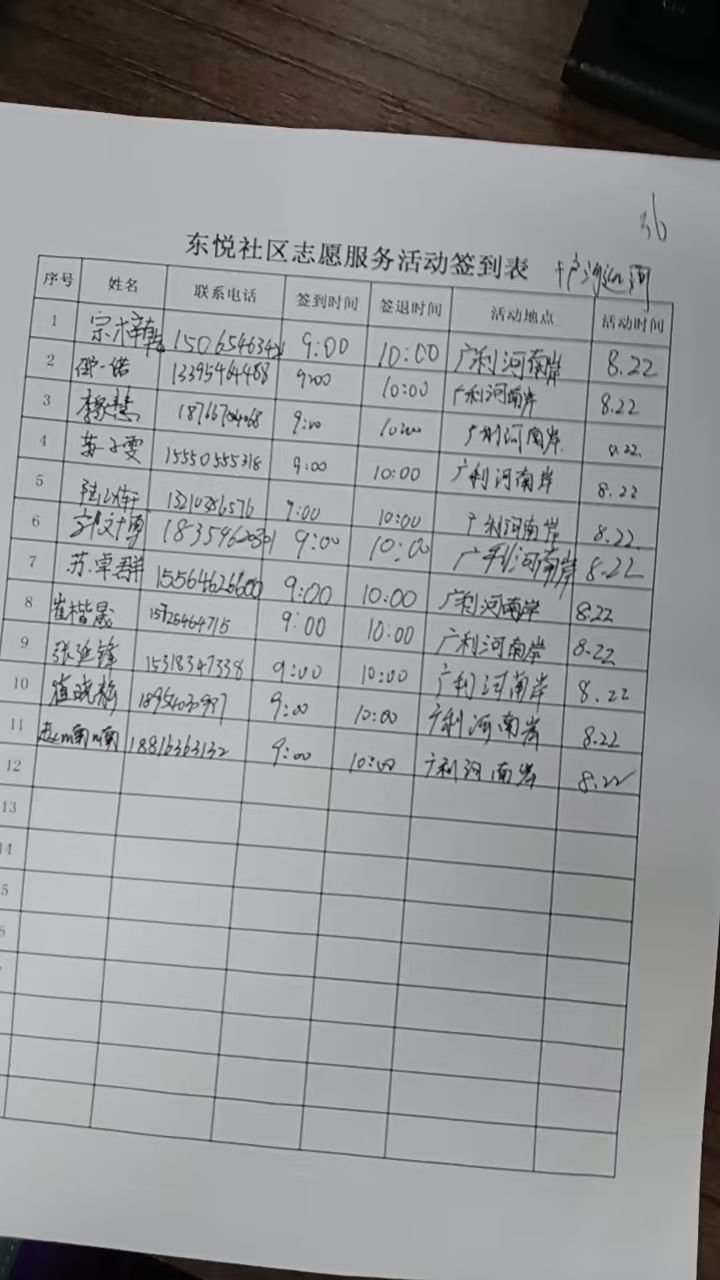 36
东悦社区志愿服务活动签到表
序号 姓名 联系电话 签到时间 签退时间 活动地点 活动时间
1 9:00 10:00 广利河南岸 8.22
2 邵一诺 13395464488 9:00 10:00 广利河南岸 8.22
3 9:00 10:00 广利河南岸 8.22
4 苏子雯 15550555318 9:00 10:00 广利河南岸 8.22
5 13210386576 9:00 10:00 广利河南岸 8.22
6 郭文博 9:00 10:00 广利河南岸 8.22
7 苏卓群 15564626600 9:00 10:00 广利河南岸 8.22
8 崔楷晟 15725464715 9:00 10:00 广利河南岸 8.22
9 张延锋 15318347338 9:00 10:00 广利河南岸 8.22
10 9:00 10:00 广利河南岸 8.22
11 18816363132 9:00 10:00 广利河南岸 8.22
12
13
14
5
6